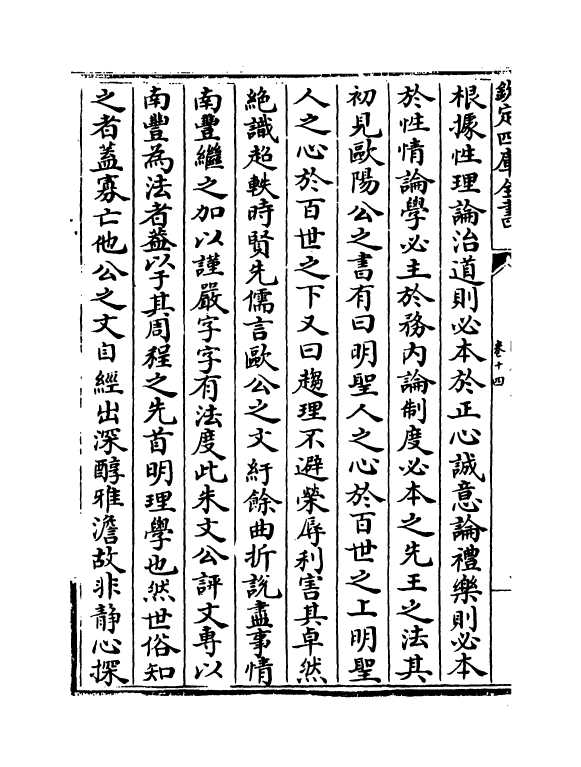 欽定四庫全書
卷十四
根據性理論治道則必本於正心誠意論禮樂則必本
於性情論學必主於務內論制度必本之先王之法其
初見歐陽公之書有曰明聖人之心於百世之上明聖
人之心於百世之下又曰趨理不避榮辱利害其卓然
絶識超軼時賢先儒言歐公之文紆餘曲折説盡事情
南豐繼之加以謹嚴字字有法度此朱文公評文專以
南豐為法者葢以于其周程之先首明理學也然世俗知
之者葢寡亡他公之文自經出深醇雅澹故非静心探